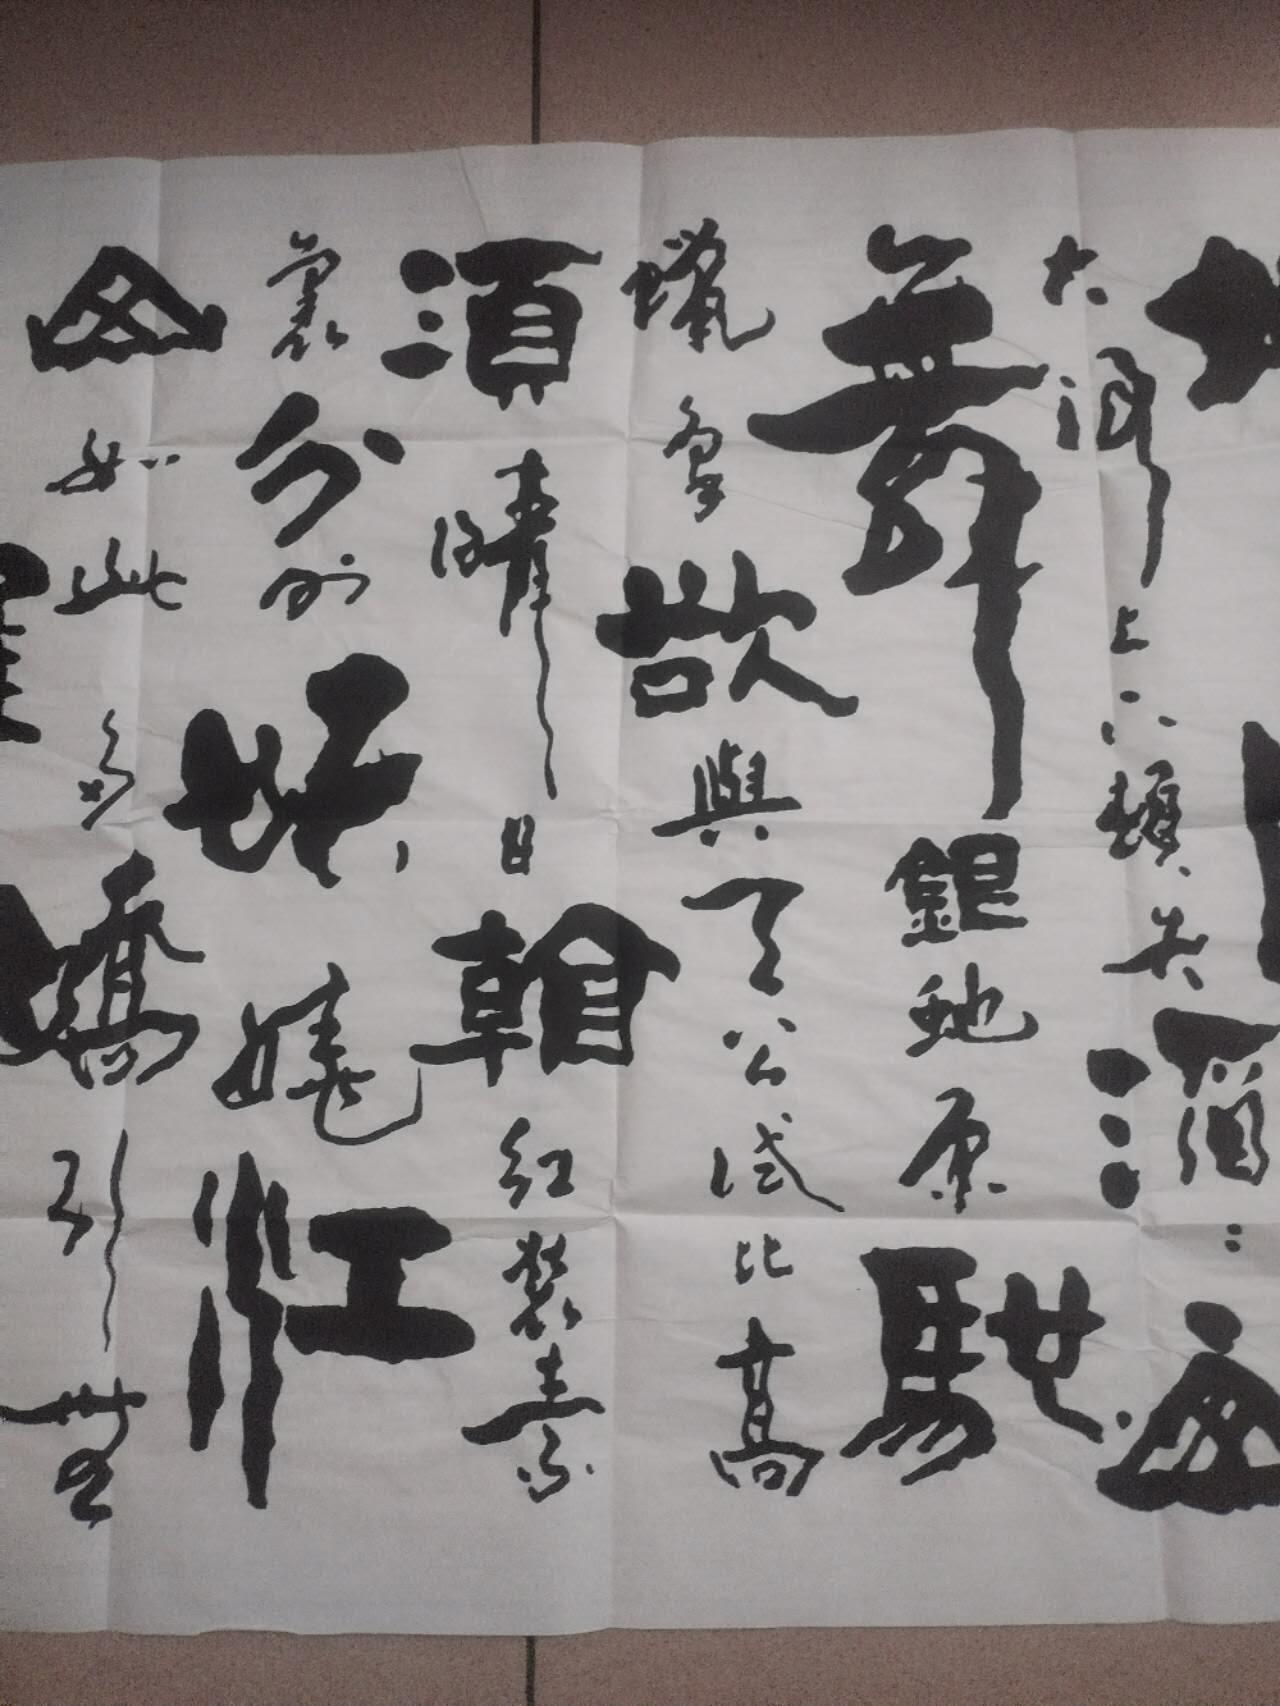 大河上下頓失滔滔山
舞銀蛇原馳
蠟象欲與天公試比高
須晴日看紅裝素
裹分外妖嬈江
山如此多嬌引無